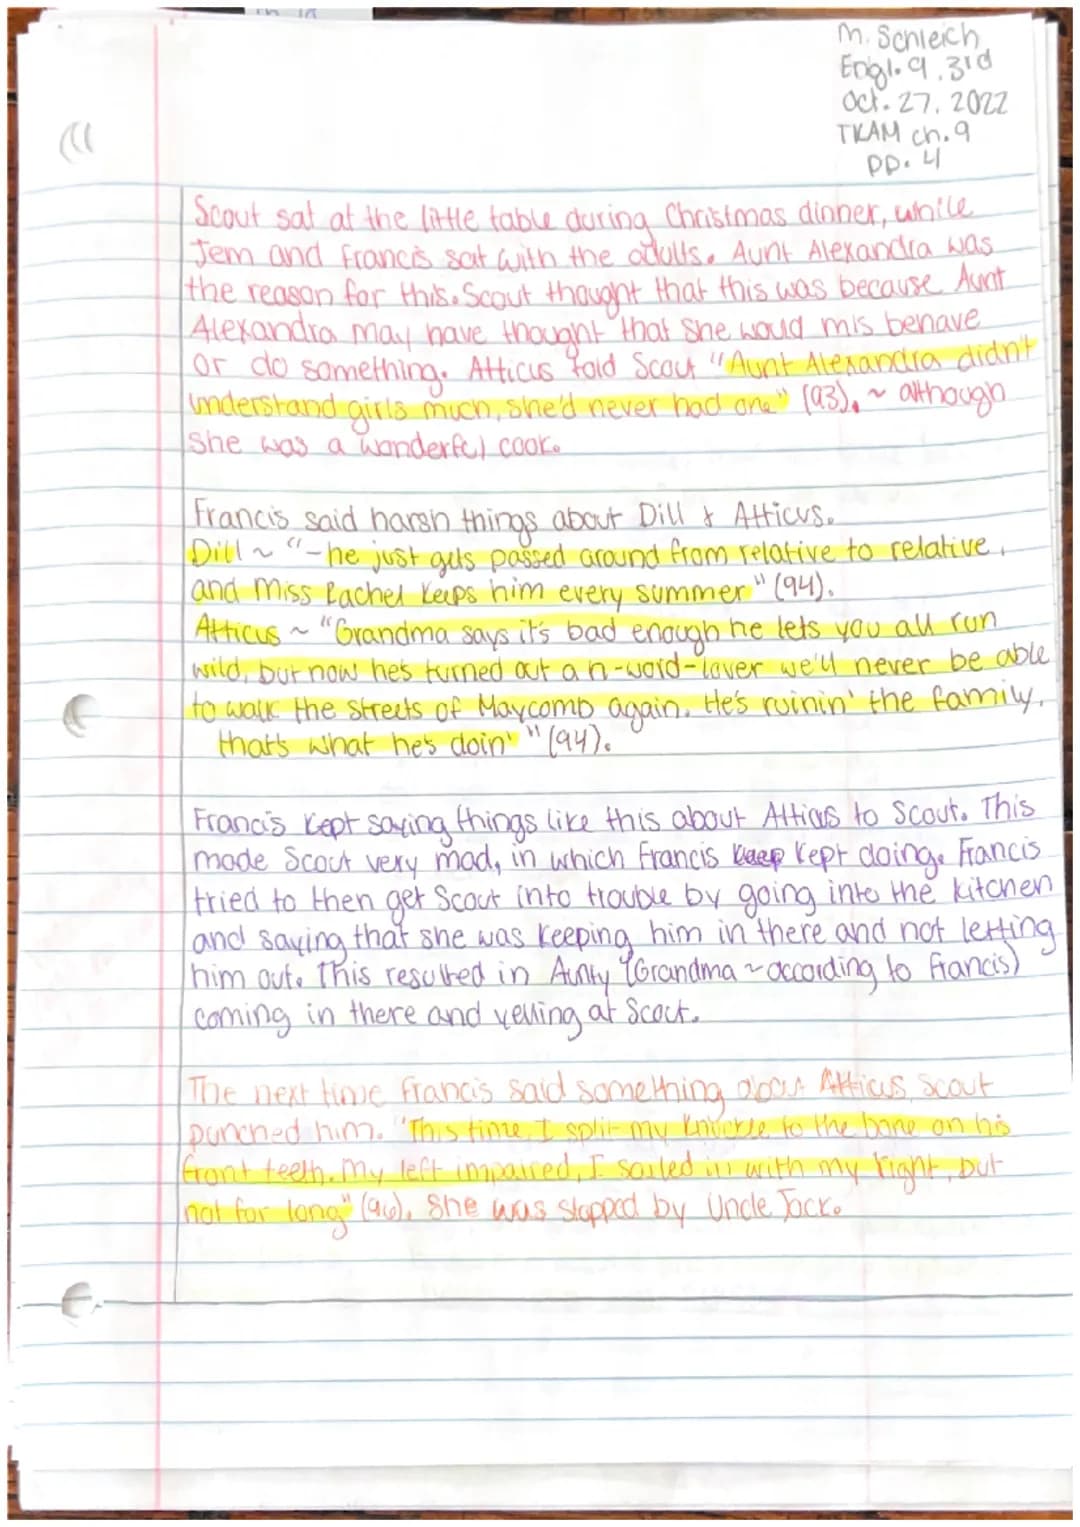 M. Schleich
Engl. 9, 3rd
Oct. 27, 2022
TKAM ch. 9
pp. 4
Scout sat at the little table during Christmas dinner, while
Jem and Francis sat with the adults. Aunt Alexandra was
the reason for this. Scout thought that this was because Aunt
Alexandra may have thought that she would mis behave
or do something. Atticus told Scout "Aunt Alexandra didn't
understand girls much, she'd never had one" (93). ~ although
she was a wonderful cook.
Francis said harsh things about Dill & Atticus.
Dill ~ "-he just gets passed around from relative to relative,
and Miss Rachel keeps him every summer" (94).
Atticus ~ "Grandma says it's bad enough he lets you all run
wild, but now he's turned out a n-word-lover we'll never be able
to walk the streets of Maycomb again. He's ruinin' the family,
thats what he's doin'" (94).
Francis kept saying things like this about Atticus to Scout. This
made Scout very mad, in which Francis kept doing. Francis
tried to then get Scout into trouble by going into the kitchen
and saying that she was keeping him in there and not letting
him out. This resulted in Aunty (Grandma ~ according to Francis)
coming in there and yelling at Scout.
The next time Francis said something about Atticus, Scout
punched him. "This time, I split my knuckle to the bone on his
front teeth. My left impaired, I sailed in with my right, but
not for long" (96). She was stopped by Uncle Jack.